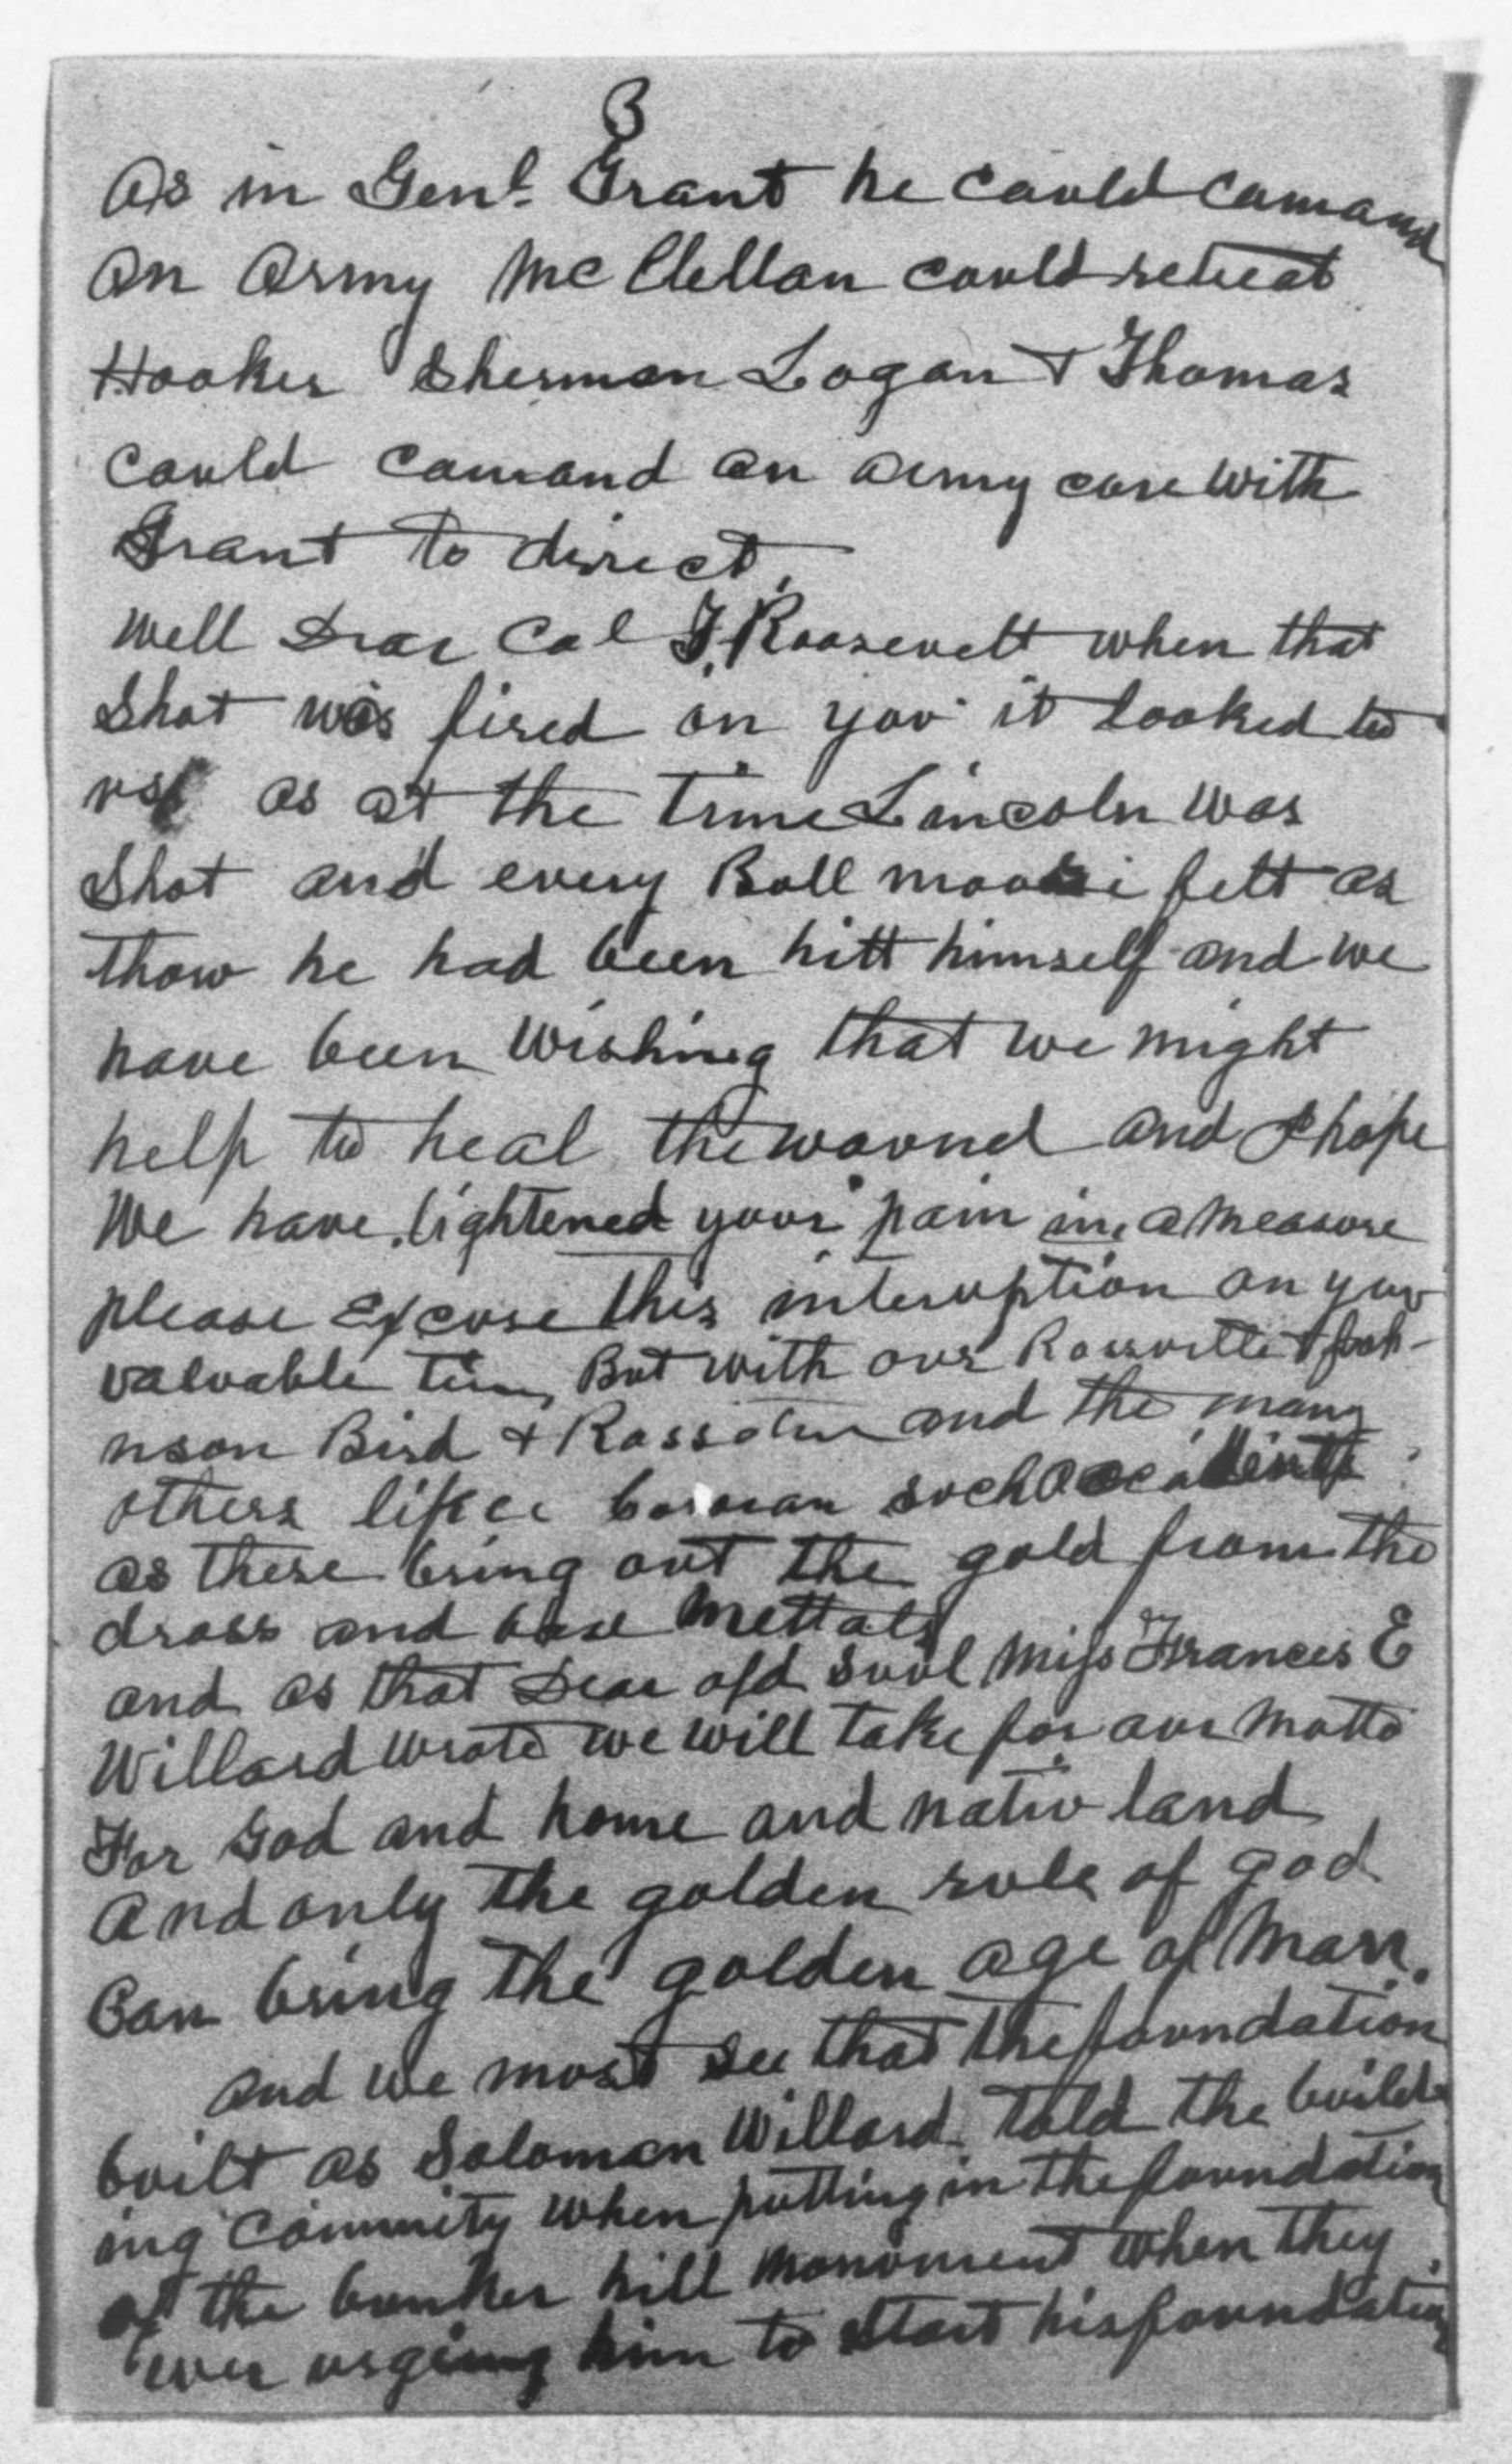 3
As in Genl. Grant he could comand
an Army McClellan could retreat
Hooker Sherman Logan & Thomas
could comand an army core with
Grant to direct.
Well Dear Col T. Roosevelt when that
shot was fired on you it looked to
us as at the time Lincoln was
shot and every Bull moose felt as
thow he had been hitt himself and we
have been wishing that we might
help to heal the wound and I hope
We have lightened your pain in a measure
please Excuse this interuption on your
valuable time, But with our Roosvelt &
nson Bird & and the many
others such accidents
as these bring out the gold from the
dross and base mettals
and as that Dear old soul Miss Frances E
Willard wrote we will take for our motto
For God and home and nativ land
And only the golden rule of god
Can bring the golden age of Man.
and we must see that the foundation
built as Soloman Willard told the build
ing Commity when putting in the foundation
of the bunker hill monument when they
wer urgeing him to start his foundation